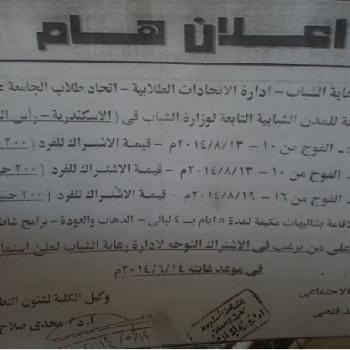 اعلان هام
عاية الشباب - ادارة الاتحادات الطلابية - اتحاد طلاب الجامعة ع
ة للمدن الشبابية التابعة لوزارة الشباب فى ( الاسكندرية - رأس ال
:- الفوج من ١٠ - ٢٠١٤/٨/١٣م - قيمة الاشتراك للفرد (٢٠٠
الفوج من ١٠ - ٢٠١٤/٨/١٣م - قيمة الاشتراك للفرد (٢٠٠ جن
- الفوج من ١٦ - ٢٠١٤/٨/١٩م - قيمة الاشتراك للفرد (٢٠٠ جني
لاقامة بشاليهات مكيفة لمدة ٥ ايام بـ ٤ ليالى - الذهاب والعودة - برامج شاط
على من يرغب فى الاشتراك التوجه لادارة رعاية الشباب لملئ استما
فى موعد غايته ٢٠١٤/٦/١٤م
الاجتماعى
وكيل الكلية لشئون التعل
د فتحى
أ.د/ مجدى صلاح